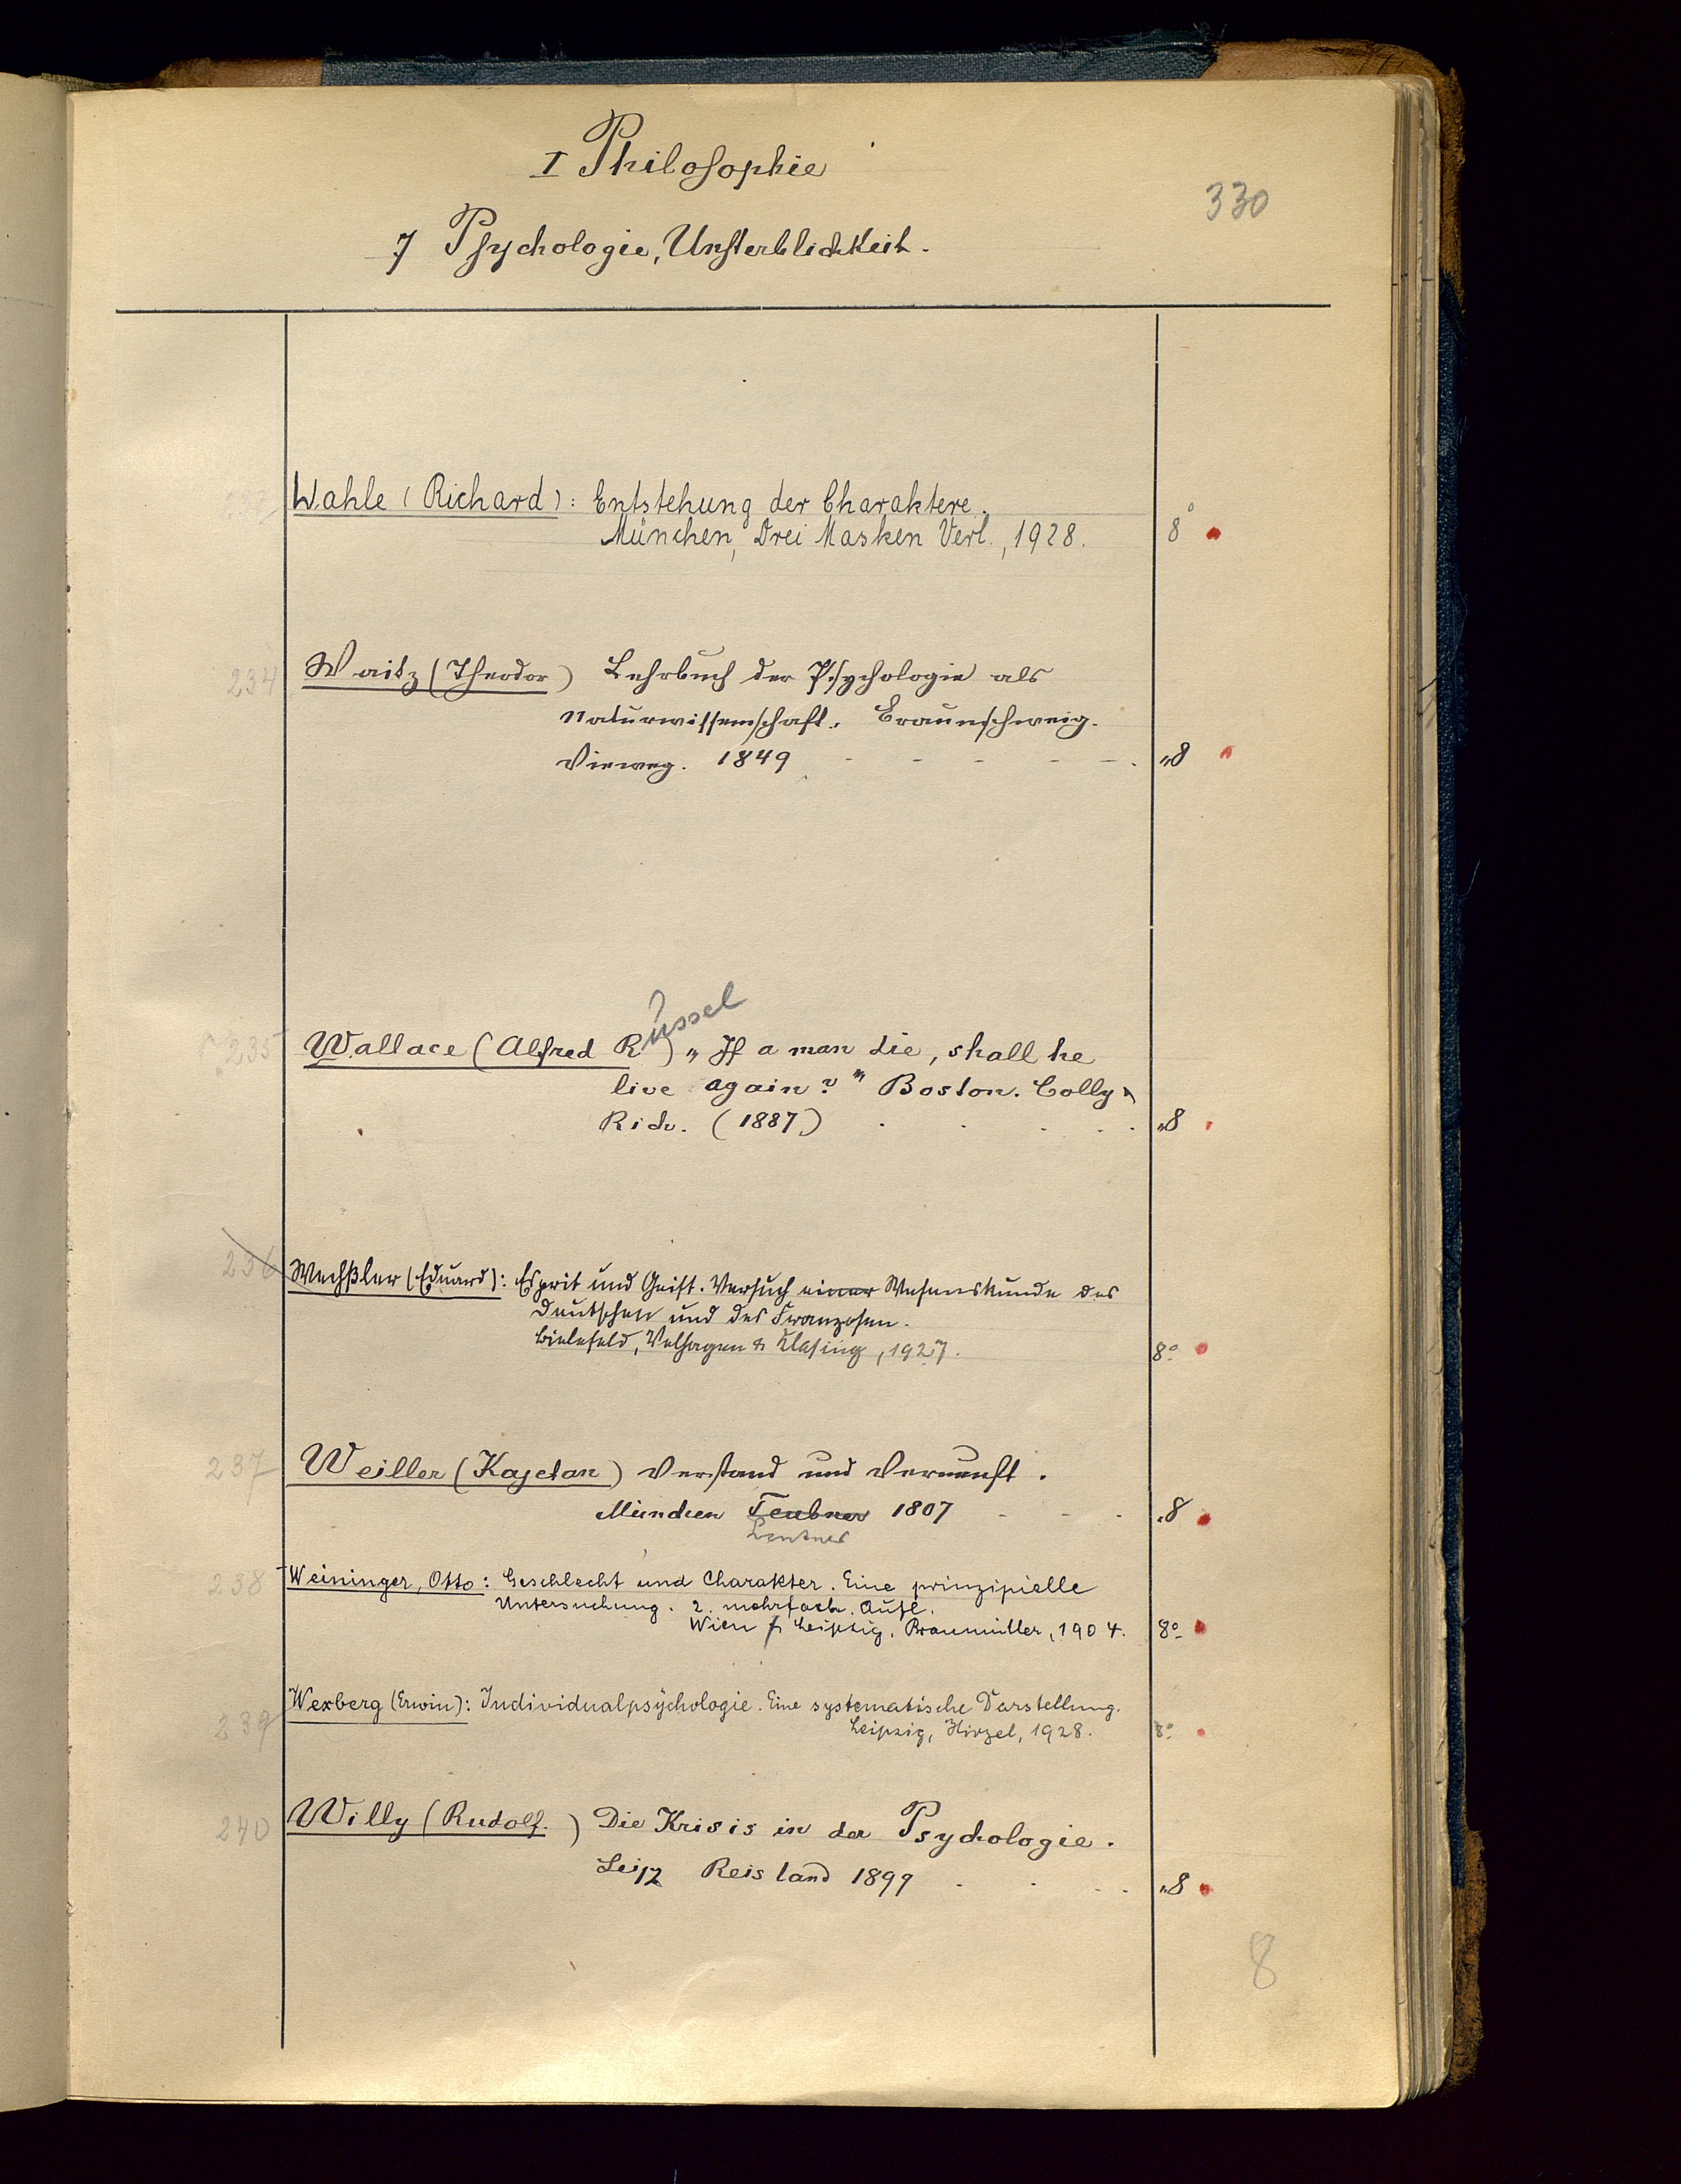 I Philosophie
330
7 Psychologie, Unsterblichkeit.
233 Wahle (Richard): Entstehung der Charaktere.
München, Drei Masken Verl., 1928. 8°
234 Waitz (Theodor) Lehrbuch der Psychologie als
Naturwissenschaft. Braunschweig.
Vieweg. 1849 - - - - - . „8
Russel
235 Wallace (Alfred R ) „If a man die, shall he
live again?" Boston. Colly &
Rich. (1887) . . . . . „8
236 Wechßler (Eduard): Esprit und Geist. Versuch einer Wesenskunde des
Deutschen und des Franzosen.
Bielefeld, Velhagen & Klasing, 1927. 8°
237 Weiller (Kajetan) Verstand und Vernunft.
München Teubner 1807 - - . „8
Lentner
238 Weininger, Otto: Geschlecht und Charakter. Eine prinzipielle
Untersuchung. 2. mehrfach. Aufl.
Wien & Leipzig, Braumüller, 1904. 8°
239 Wexberg (Erwin): Individualpsychologie. Eine systematische Darstellung.
Leipzig, Hirzel, 1928. 8°
240 Willy (Rudolf.) Die Krisis in der Psychologie.
Leipz Reisland 1899 . . . . „8
8